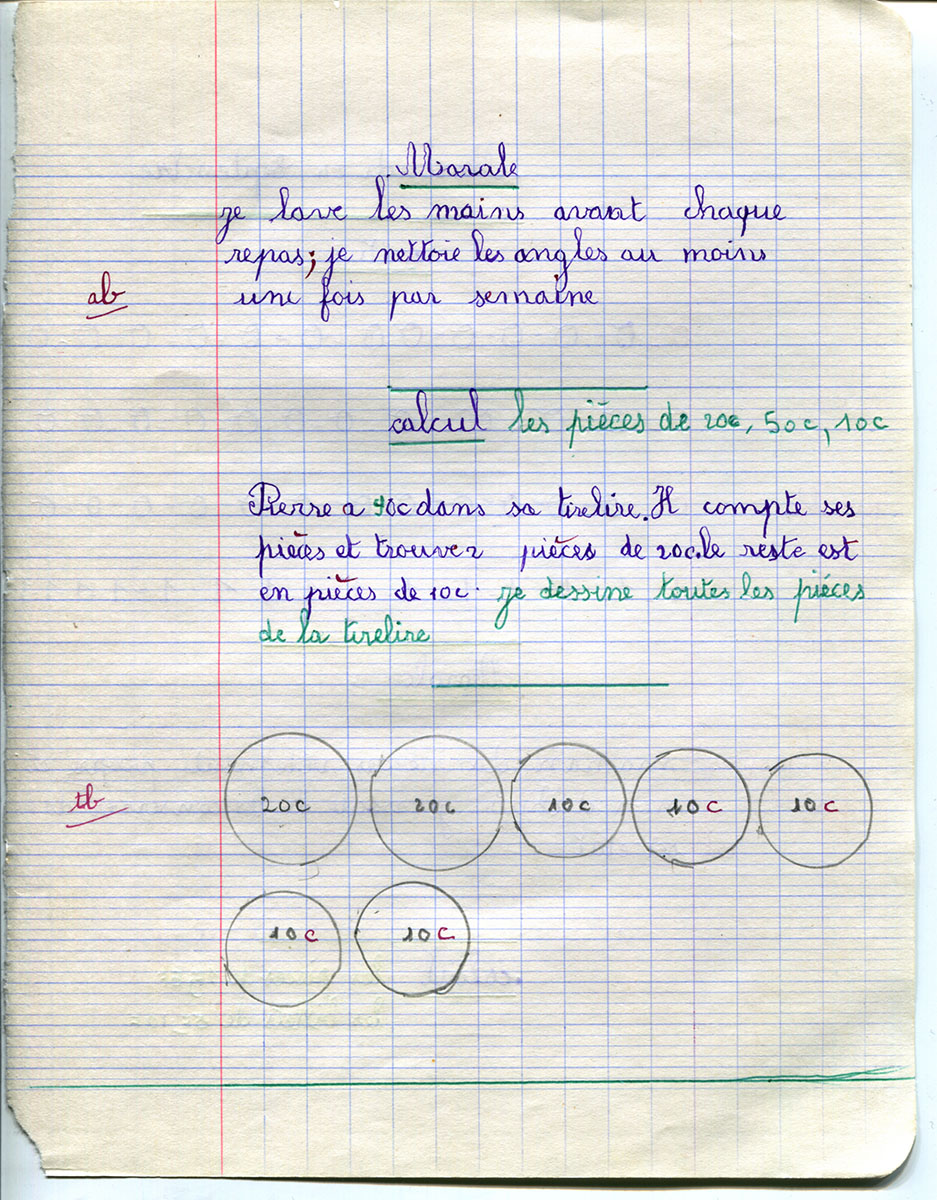 Morale
je lave les mains avant chaque
repas; je nettoie les ongles au moins
ab
une fois par semaine
calcul les pièces de 20c, 50c, 10c
Pierre a 90c dans sa tirelire. Il compte ses
pièces et trouve 2 pièces de 20c. le reste est
en pièces de 10c. je dessine toutes les pièces
de la tirelire
tb
20c 20c 10c 10c 10c
10c 10c